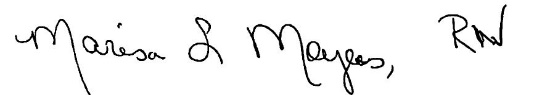 Marisa L Mayers, RN